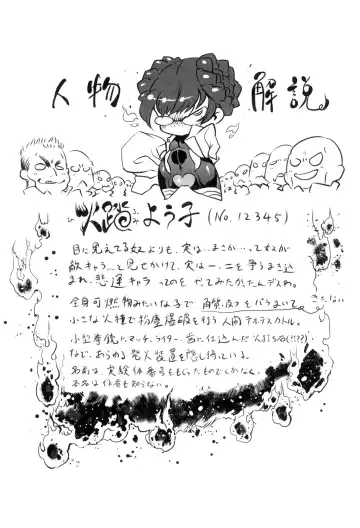 人物 解説
火踏よう子 (No.12345)
ひ ふみ
目に見えてる奴よりも、実は…まさか…ってすが
敵キャラ…と見せかけて、実は一、二を争うまき込
まれ、悲運キャラってのをやてみたかたんデスわ。
全身可燃物みたいな子で をバラまいて。
きたない
小さな火種で粉塵爆破を行う人間
小型 、マッチ、ライター、歯に仕込んだ火打ち石(!!??)
など、あらゆる発火装置を隠し持っている。
名前は、実験体番号をもじったものでしかなく、
本名は作者も知らない。